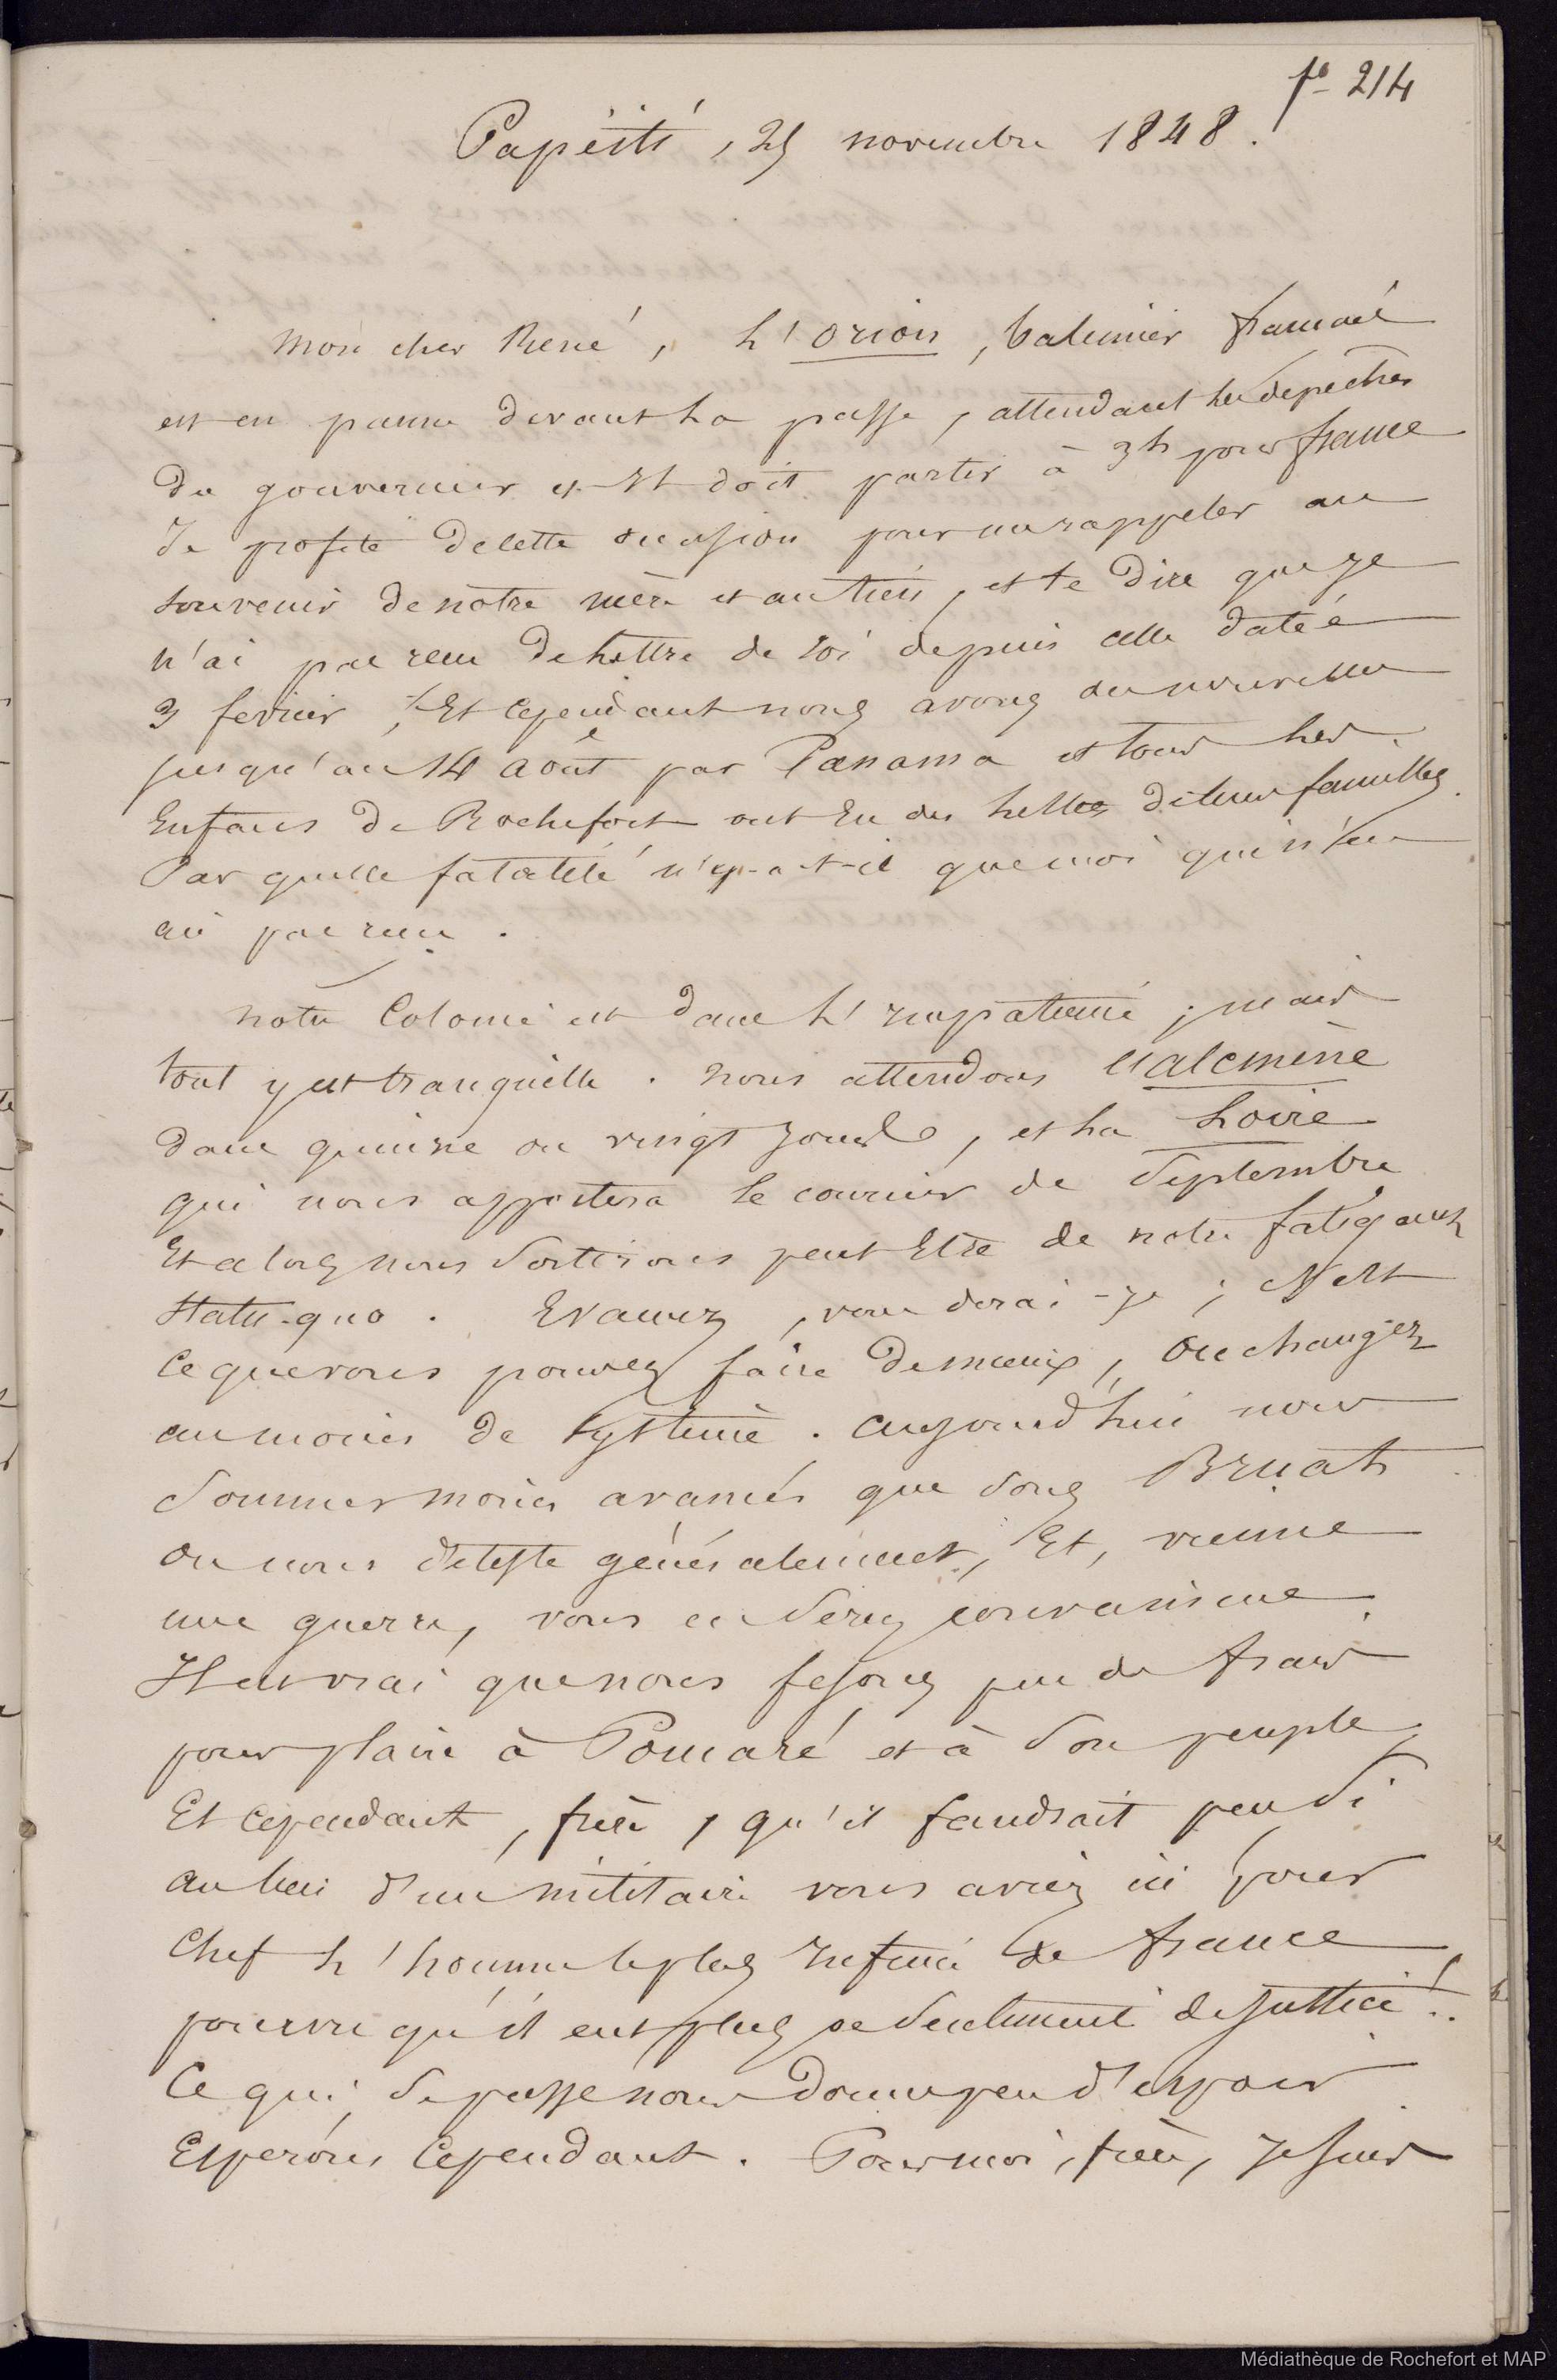 fo 214
Papéiti, 25 novembre 1848.
Mon cher René, L'Orion, balenier francais
est en panne devant La passe, attendant les depeches
du gouverneur et Il doit partir à 3h pour france
Je profite de cette occasion pour me rappeler au
souvenir de notre mère et au tien, et te dire que je
n'ai pas recu de Lettre de toi depuis celle datée
3 fevrier, Et cependant nous avons des nouvelles
jusqu'au 14 Août par Panama et tous Les
Enfans de Rochefort ont Eu des Lettres de leurs familles.
Par quelle fatalité n'y-a-t-il que moi qui n'en
ai pas recu.
notre Colonie est dans L'impatience; mais
tout y est tranquille. nous attendons L'alcmène
dans quinze ou vingt jours, et La Loire
qui nous apportera Le courrier de Septembre
Et alors nous Sortirons peut Etre de notre fatigant
Statu-quo. Evacuez, vous dirai-je; C'est
Ce que vous pouvez faire de mieux, Ou changez
au moins de Systeme. aujourd'hui nous
Sommes moins avancés que Sous Bruat
On nous déteste généralement, Et, vienne
une guerre, vous en Serez convaincus.
Il est vrai que nous fesons peu de frais
pour plaire à Pomaré et à Son peuple,
Et Cependant, frère, qu'il faudrait peu Si
au lieu d'un militaire vous aviez ici pour
Chef L'homme le plus infime de france
pourvu qu'il eut plus de Sentiment de justice!.
Ce qui Se passe nous donne peu d'espoir
Esperons Cependant. Pour moi, frère, Je suis
Médiathèque de Rochefort et MAP